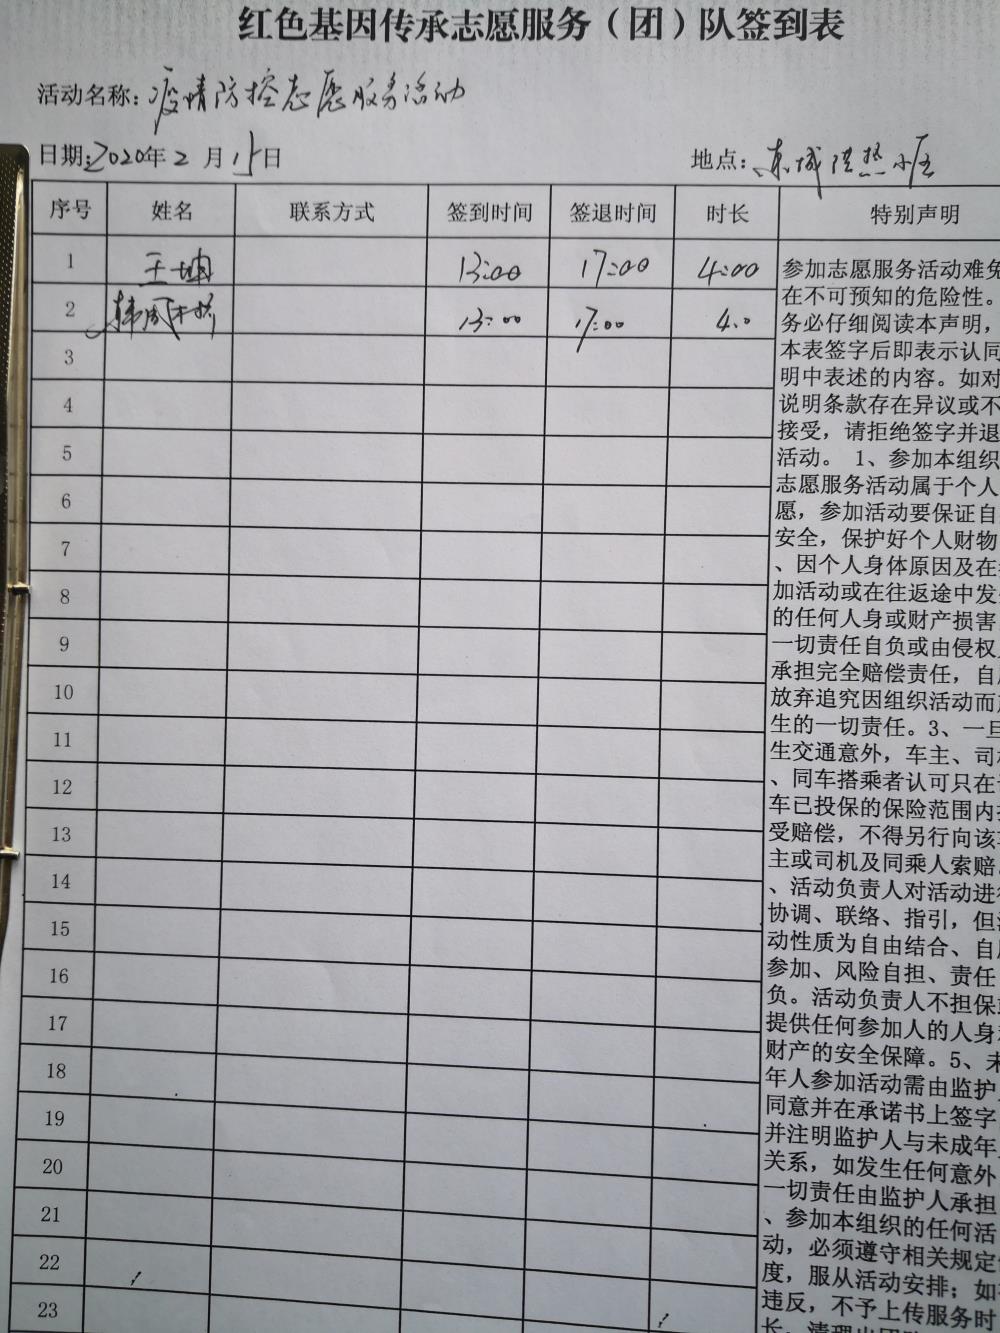 红色基因传承志愿服务（团）队签到表
活动名称：疫情防控志愿服务活动
日期：2020年2月15日 地点：东城洪热小区
序号 姓名 联系方式 签到时间 签退时间 时长 特别声明
1 王 13:00 17:00 4:00
2 韩风 13:00 17:00 4.0
3
4
5
6
7
8
9
10
11
12
13
14
15
16
17
18
19
20
21
22
23
参加志愿服务活动难免
在不可预知的危险性。
务必仔细阅读本声明，
本表签字后即表示认同
明中表述的内容。如对
说明条款存在异议或不
接受，请拒绝签字并退
活动。 1、参加本组织
志愿服务活动属于个人
愿，参加活动要保证自
安全，保护好个人财物
、因个人身体原因及在
加活动或在往返途中发
的任何人身或财产损害
一切责任自负或由侵权
承担完全赔偿责任，自
放弃追究因组织活动而
生的一切责任。3、一旦
生交通意外，车主、司
、同车搭乘者认可只在
车已投保的保险范围内
受赔偿，不得另行向该
主或司机及同乘人索赔
、活动负责人对活动进
协调、联络、指引，但
动性质为自由结合、自
参加、风险自担、责任
负。活动负责人不担保
提供任何参加人的人身
财产的安全保障。5、未
年人参加活动需由监护
同意并在承诺书上签字
并注明监护人与未成年
关系，如发生任何意外
一切责任由监护人承担
、参加本组织的任何活
动，必须遵守相关规定
度，服从活动安排；如
违反，不予上传服务时
长，清理出团队